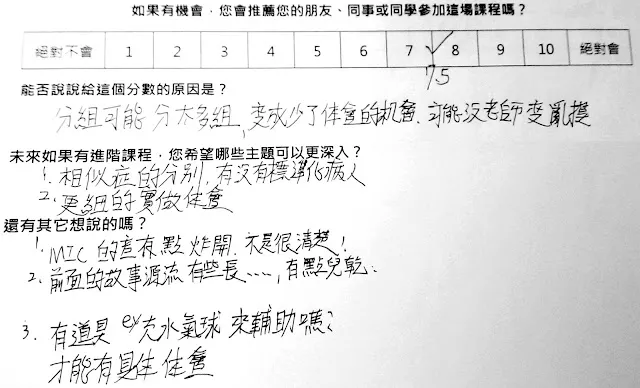 如果有機會，您會推薦您的朋友、同事或同學參加這場課程嗎？
絕對不會 1 2 3 4 5 6 7 8 9 10 絕對會
7.5
能否說說給這個分數的原因是？
分組可能分太多組，变成少了体會的机會，可能沒老師变亂摸
未來如果有進階課程，您希望哪些主題可以更深入？
1. 相似症的分別，有沒有標準化病人
2. 更細的實做体會
還有其它想說的嗎？
1. MIC 的音有點炸開，不是很清楚！
2. 前面的故事源流有些長……，有點兒乾。
3. 有道具 ex 充水氣球 來輔助嗎？
才能有具体体會